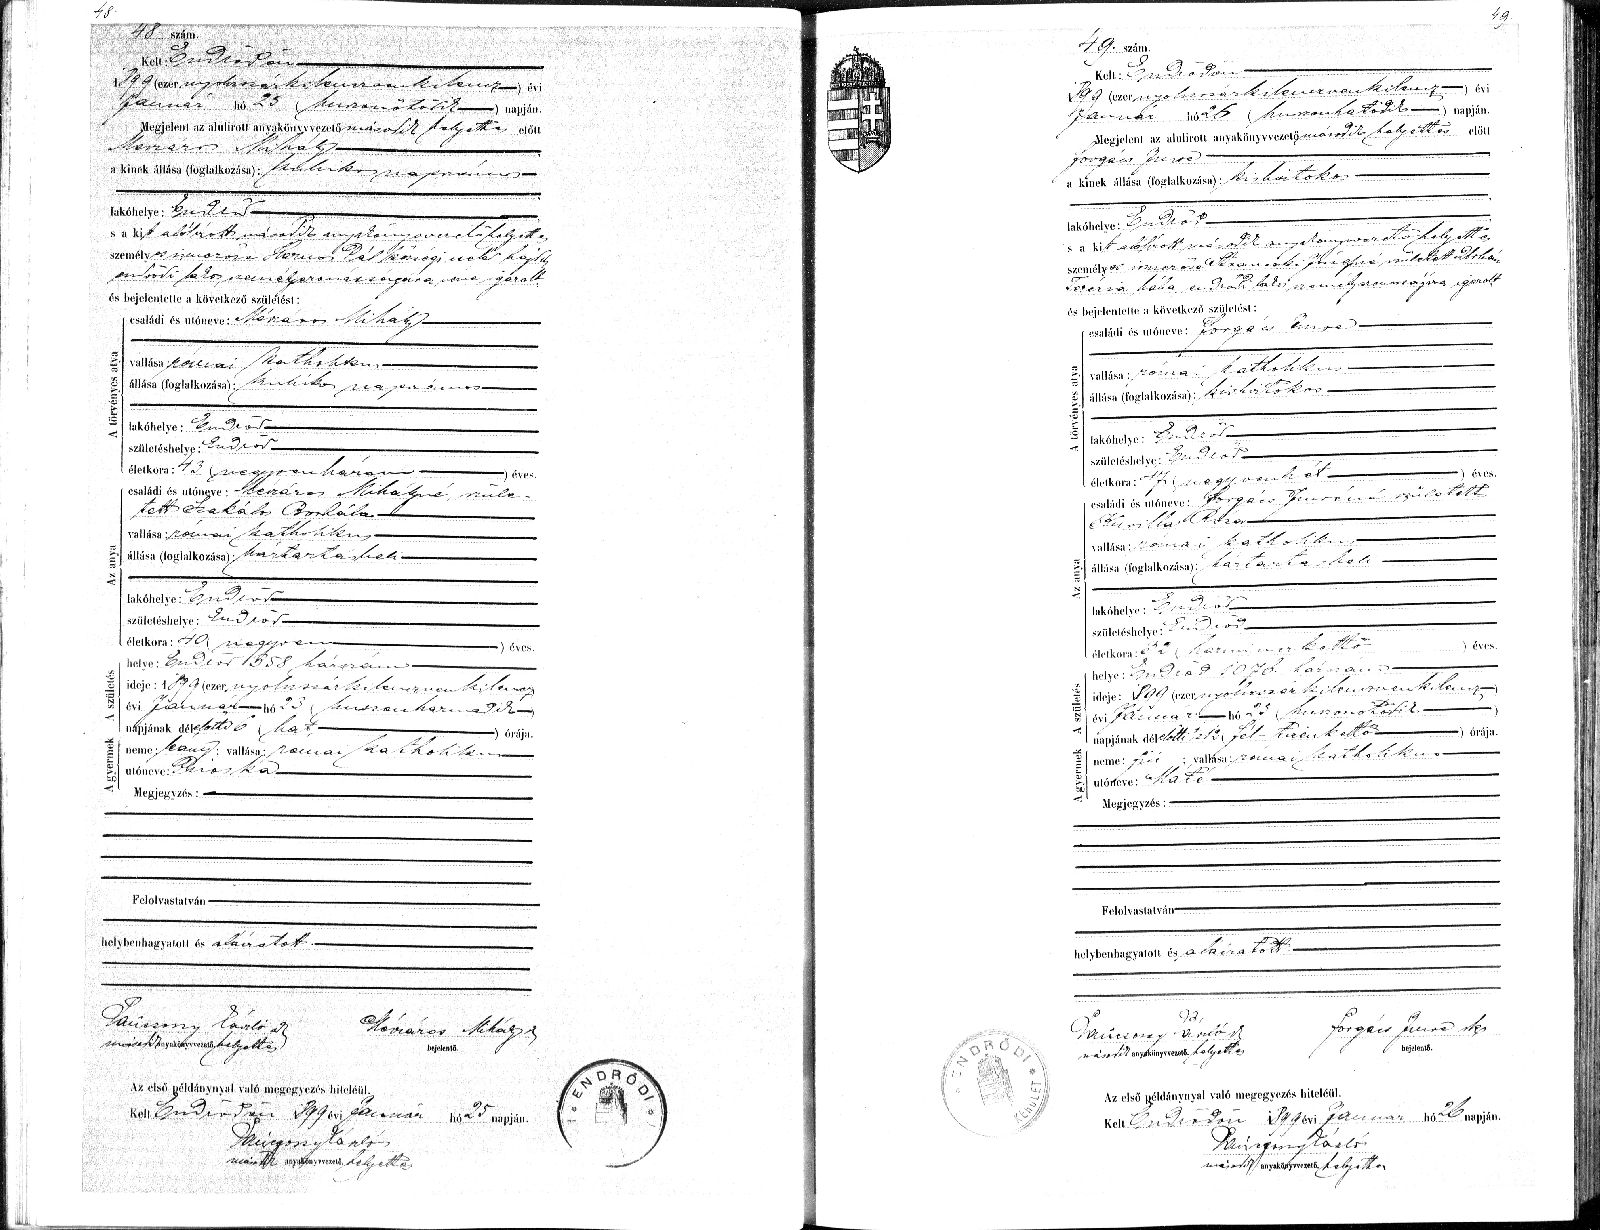 48.
48 szám.
Kelt: Endrődön
1899 (ezer nyolcszázkilenczvenkilencz) évi
Január hó 25 (huszonötödik) napján.
Megjelent az alulirott anyakönyvvezető második helyettes előtt
Mészáros Mihály
a kinek állása (foglalkozása): kubikos napszámos
lakóhelye: Endrőd
s a kit alólirott második anyakönyvvezető helyettes
személyes
és bejelentette a következő születést:
A törvényes atya
családi és utóneve: Mészáros Mihály
vallása: római katholikus
állása (foglalkozása): kubikos napszámos
lakóhelye: Endrőd
születéshelye: Endrőd
életkora: 43 (negyvenhárom) éves.
Az anya
családi és utóneve: Mészáros Mihályné szüle-
tett Szakálos Borbála
vallása: római katholikus
állása (foglalkozása): háztartásbeli
lakóhelye: Endrőd
születéshelye: Endrőd
életkora: 40 (negyven) éves.
A születés
helye: Endrőd 1358 házszám
ideje: 1899 (ezer nyolcszázkilenczvenkilencz)
évi Január hó 23 (huszonharmadik)
napjának délelőtti 6 hat órája.
A gyermek
neme: leány; vallása: római katholikus
utóneve: Piroska
Megjegyzés:
Felolvastatván
helybenhagyatott és aláiratott
anyakönyvvezető helyettes
Mészáros Mihály
bejelentő.
Az első példánynyal való megegyezés hiteléül.
Kelt Endrődön 1899 évi Január hó 25 napján.
második anyakönyvvezető helyettes
ENDRŐDI
49.
49. szám.
Kelt: Endrődön
1899 (ezer nyolcszázkilenczvenkilencz) évi
Január hó 26 (huszonhatodik) napján.
Megjelent az alulirott anyakönyvvezető második helyettes előtt
Forgács Imre
a kinek állása (foglalkozása): kisbirtokos
lakóhelye: Endrőd
s a kit alólirott második anyakönyvvezető helyettes
személyes
és bejelentette a következő születést:
A törvényes atya
családi és utóneve: Forgács Imre
vallása: római katholikus
állása (foglalkozása): kisbirtokos
lakóhelye: Endrőd
születéshelye: Endrőd
életkora: éves.
Az anya
családi és utóneve: Forgács Imréné született
Róza
vallása: római katholikus
állása (foglalkozása): háztartásbeli
lakóhelye: Endrőd
születéshelye: Endrőd
életkora: 32 (harminczkettő) éves.
A születés
helye: Endrőd 1076 házszám
ideje: 1899 (ezer nyolcszázkilenczvenkilencz)
évi Január hó 25 (huszonötödik)
napjának délelőtti fél tizenkettő órája.
A gyermek
neme: fiú; vallása: római katholikus
utóneve: Máté
Megjegyzés:
Felolvastatván
helybenhagyatott és aláiratott
második anyakönyvvezető helyettes
Forgács Imre
bejelentő.
Az első példánynyal való megegyezés hiteléül.
Kelt Endrődön 1899 évi Január hó 26 napján.
második anyakönyvvezető helyettes
ENDRŐDI